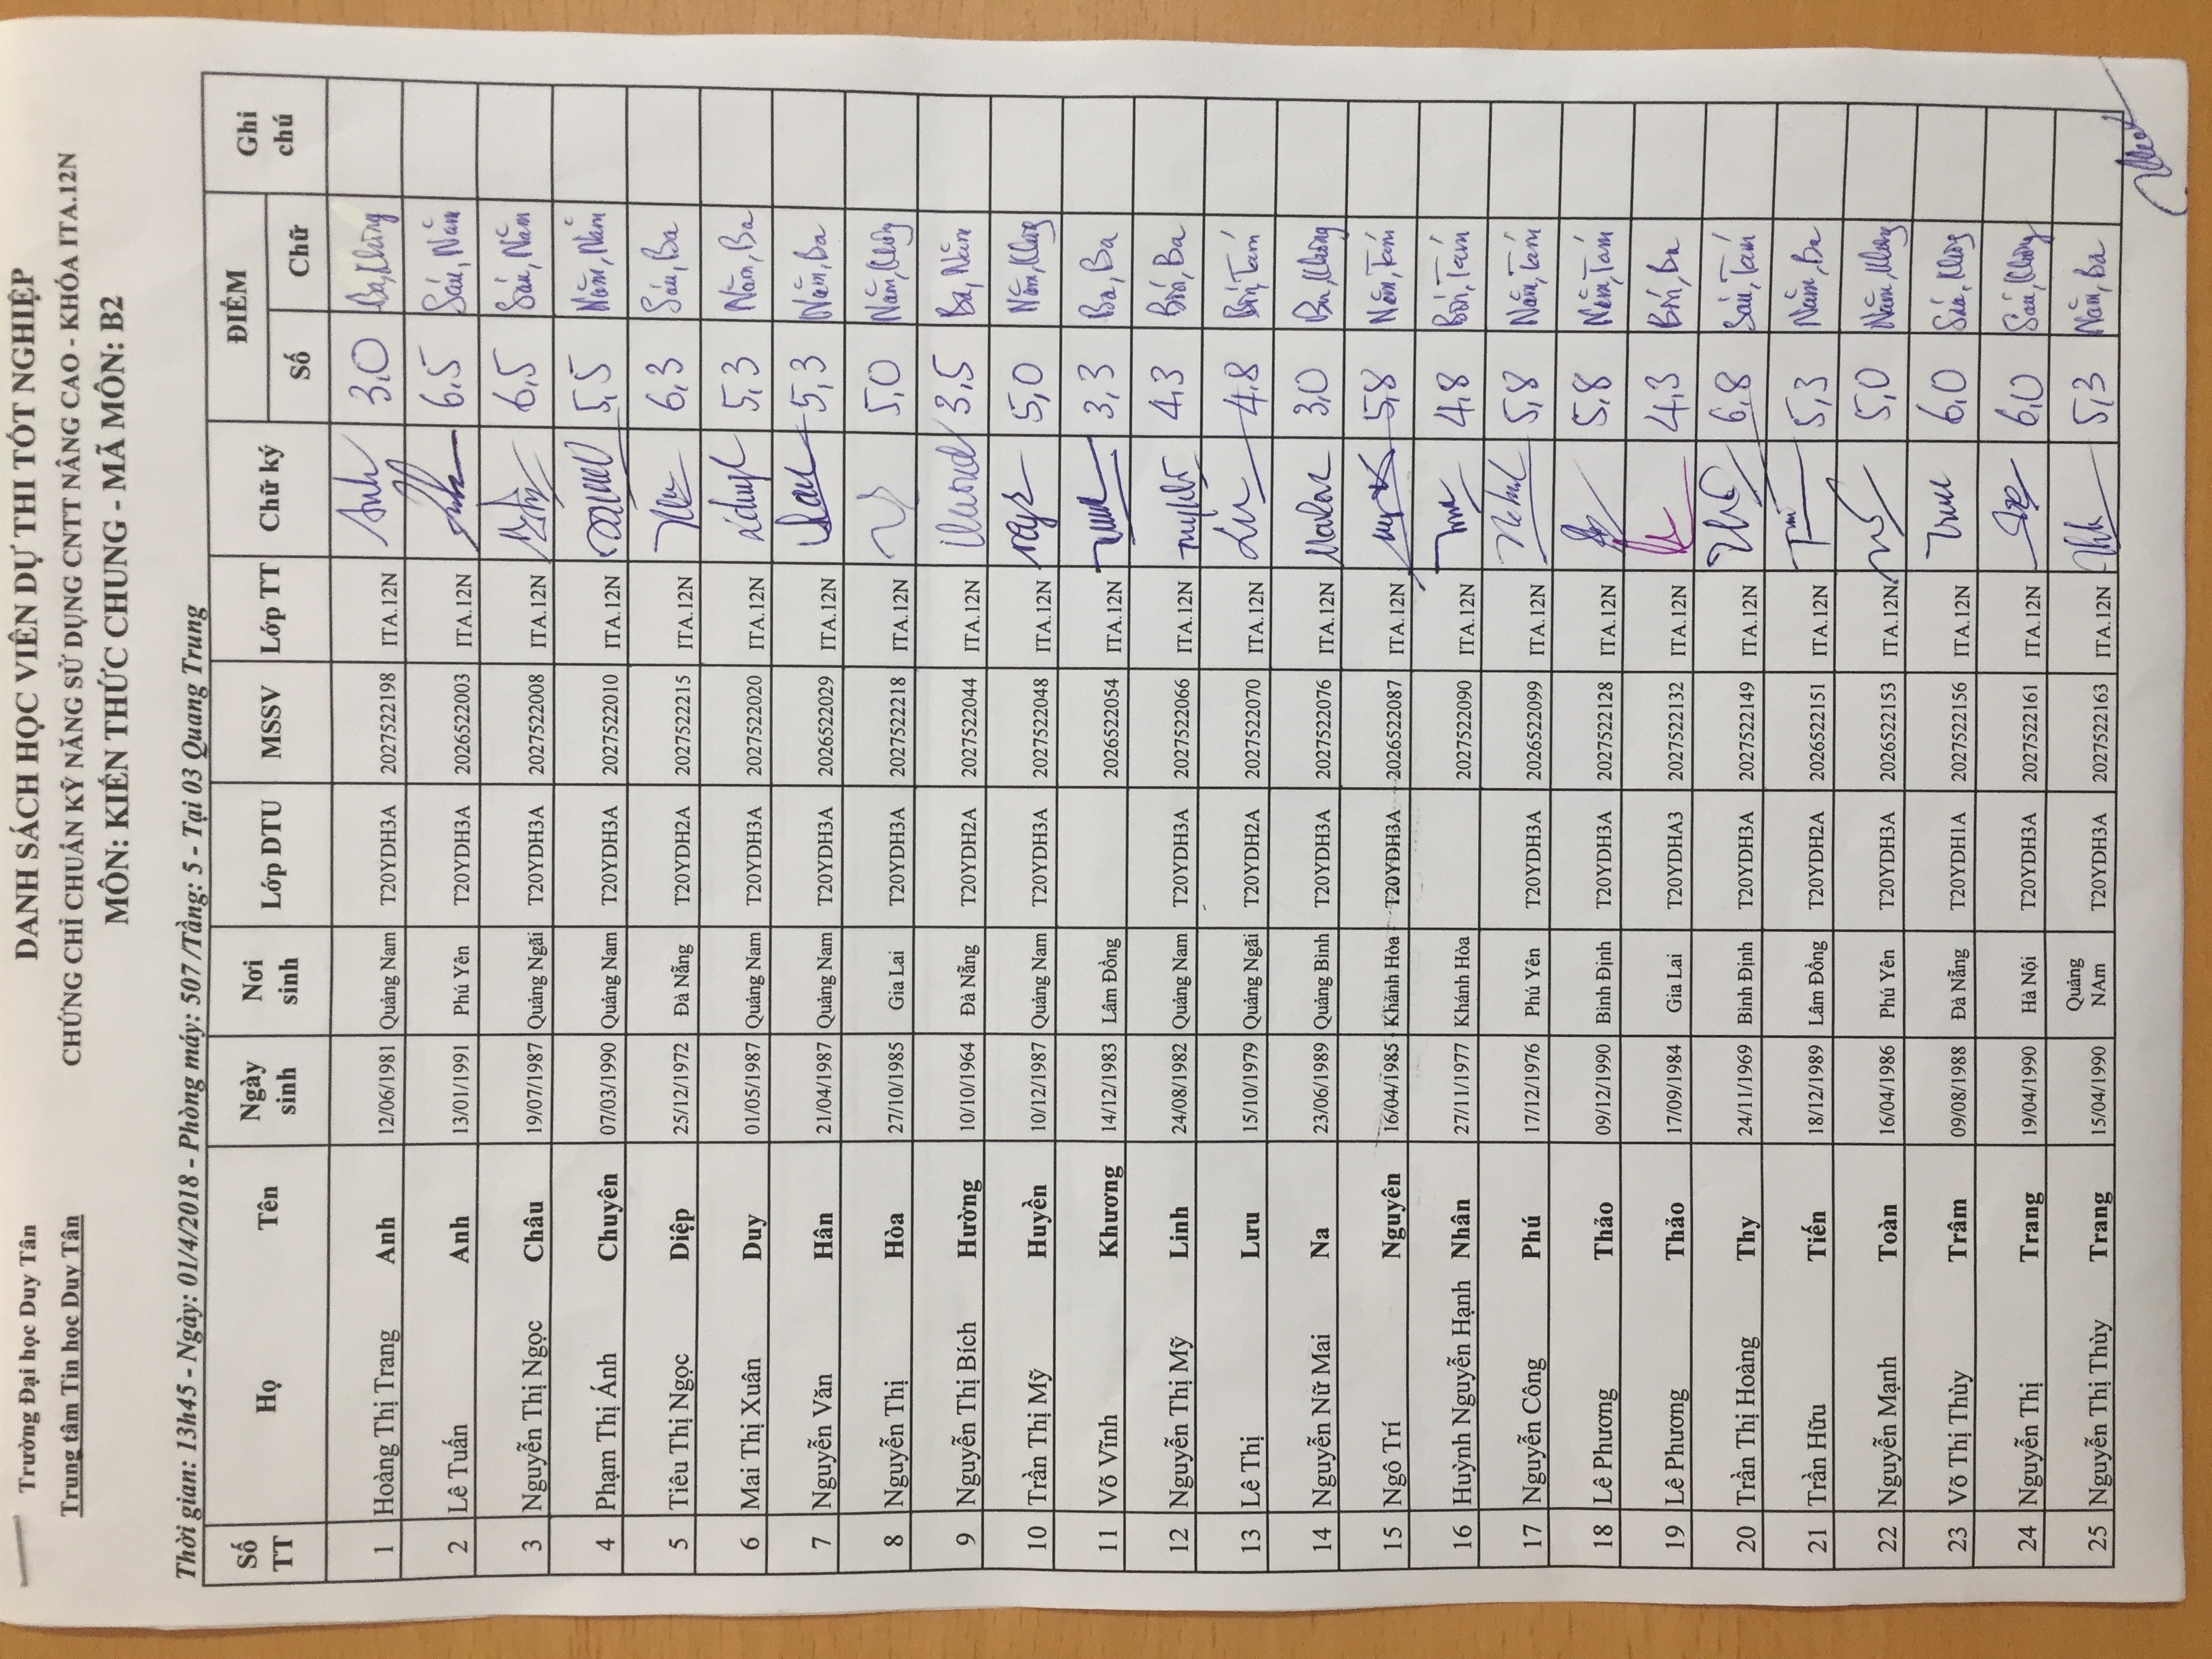 Trường Đại học Duy Tân
Trung tâm Tin học Duy Tân
DANH SÁCH HỌC VIÊN DỰ THI TỐT NGHIỆP
CHỨNG CHỈ CHUẨN KỸ NĂNG SỬ DỤNG CNTT NÂNG CAO - KHÓA ITA.12N
MÔN: KIẾN THỨC CHUNG - MÃ MÔN: B2
Thời gian: 13h45 - Ngày: 01/4/2018 - Phòng máy: 507 /Tầng: 5 - Tại 03 Quang Trung
Số TT Họ Tên Ngày sinh Nơi sinh Lớp DTU MSSV Lớp TT Chữ ký ĐIỂM Ghi chú
Số Chữ
1 Hoàng Thị Trang Anh 12/06/1981 Quảng Nam T20YDH3A 2027522198 ITA.12N Anh 3,0 Ba, Không
2 Lê Tuấn Anh 13/01/1991 Phú Yên T20YDH3A 2026522003 ITA.12N 6,5 Sáu, Năm
3 Nguyễn Thị Ngọc Châu 19/07/1987 Quảng Ngãi T20YDH3A 2027522008 ITA.12N 6,5 Sáu, Năm
4 Phạm Thị Ánh Chuyên 07/03/1990 Quảng Nam T20YDH3A 2027522010 ITA.12N 5,5 Năm, Năm
5 Tiêu Thị Ngọc Diệp 25/12/1972 Đà Nẵng T20YDH2A 2027522215 ITA.12N 6,3 Sáu, Ba
6 Mai Thị Xuân Duy 01/05/1987 Quảng Nam T20YDH3A 2027522020 ITA.12N 5,3 Năm, Ba
7 Nguyễn Văn Hân 21/04/1987 Quảng Nam T20YDH3A 2026522029 ITA.12N 5,3 Năm, Ba
8 Nguyễn Thị Hòa 27/10/1985 Gia Lai T20YDH3A 2027522218 ITA.12N 5,0 Năm, Không
9 Nguyễn Thị Bích Hường 10/10/1964 Đà Nẵng T20YDH2A 2027522044 ITA.12N 3,5 Ba, Năm
10 Trần Thị Mỹ Huyền 10/12/1987 Quảng Nam T20YDH3A 2027522048 ITA.12N 5,0 Năm, Không
11 Võ Vĩnh Khương 14/12/1983 Lâm Đồng 2026522054 ITA.12N 3,3 Ba, Ba
12 Nguyễn Thị Mỹ Linh 24/08/1982 Quảng Nam T20YDH3A 2027522066 ITA.12N 4,3 Bốn, Ba
13 Lê Thị Lưu 15/10/1979 Quảng Ngãi T20YDH2A 2027522070 ITA.12N 4,8 Bốn, Tám
14 Nguyễn Nữ Mai Na 23/06/1989 Quảng Bình T20YDH3A 2027522076 ITA.12N 3,0 Ba, Không
15 Ngô Trí Nguyên 16/04/1985 Khánh Hòa T20YDH3A 2026522087 ITA.12N 5,8 Năm, Tám
16 Huỳnh Nguyễn Hạnh Nhân 27/11/1977 Khánh Hòa 2027522090 ITA.12N 4,8 Bốn, Tám
17 Nguyễn Công Phú 17/12/1976 Phú Yên T20YDH3A 2026522099 ITA.12N 5,8 Năm, Tám
18 Lê Phương Thảo 09/12/1990 Bình Định T20YDH3A 2027522128 ITA.12N 5,8 Năm, Tám
19 Lê Phương Thảo 17/09/1984 Gia Lai T20YDHA3 2027522132 ITA.12N 4,3 Bốn, Ba
20 Trần Thị Hoàng Thy 24/11/1969 Bình Định T20YDH3A 2027522149 ITA.12N 6,8 Sáu, Tám
21 Trần Hữu Tiến 18/12/1989 Lâm Đồng T20YDH2A 2026522151 ITA.12N 5,3 Năm, Ba
22 Nguyễn Mạnh Toàn 16/04/1986 Phú Yên T20YDH3A 2026522153 ITA.12N 5,0 Năm, Không
23 Võ Thị Thùy Trâm 09/08/1988 Đà Nẵng T20YDH1A 2027522156 ITA.12N 6,0 Sáu, Không
24 Nguyễn Thị Trang 19/04/1990 Hà Nội T20YDH3A 2027522161 ITA.12N 6,0 Sáu, Không
25 Nguyễn Thị Thùy Trang 15/04/1990 Quảng NAm T20YDH3A 2027522163 ITA.12N 5,3 Năm, Ba